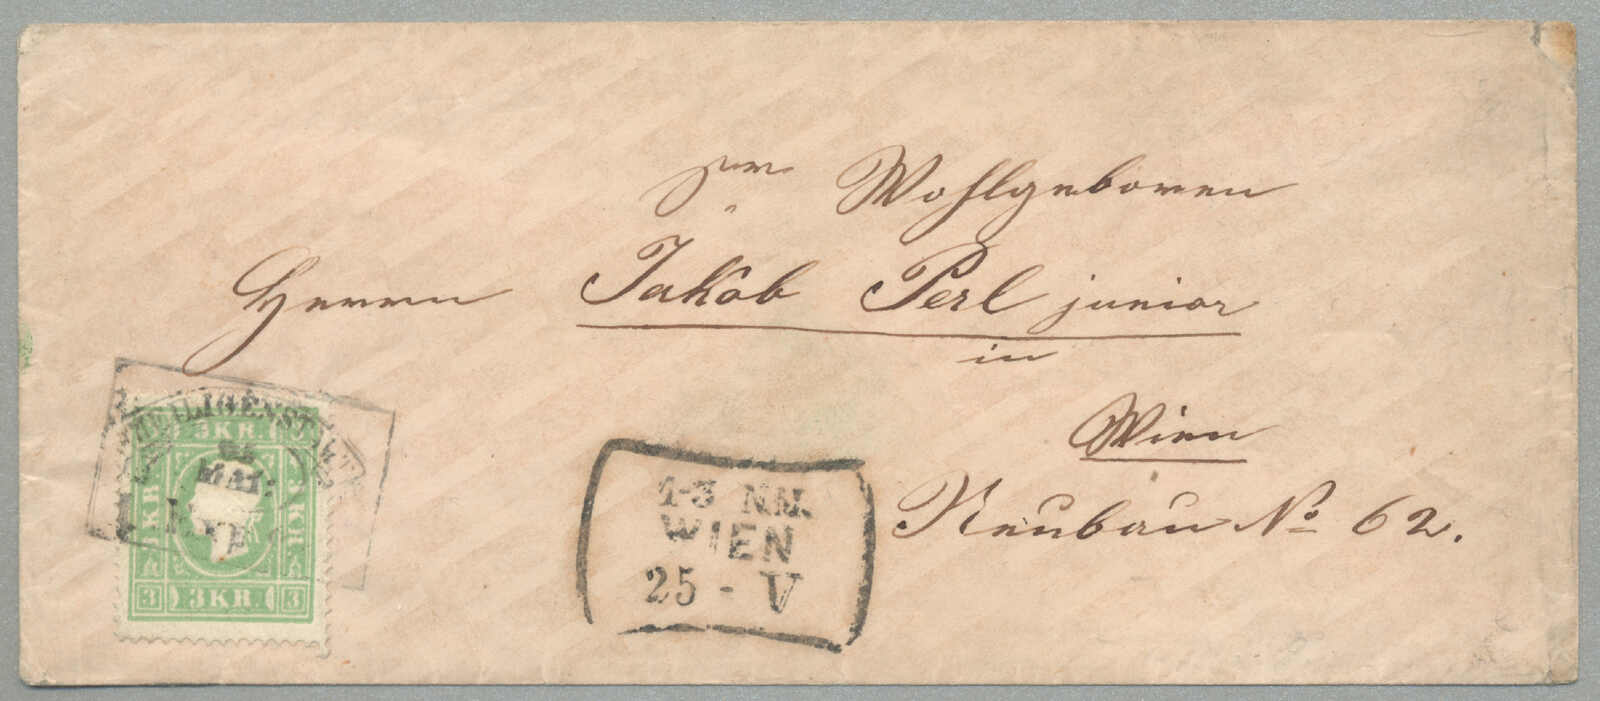 Sr Wohlgeboren
Herrn Jakob Perl junior
in
Wien
Neubau No 62.
HEILIGENSTADT
MAI
3KR.
3KR.
3KR.
3 3KR. 3
1-3 N.M.
WIEN
25 - V